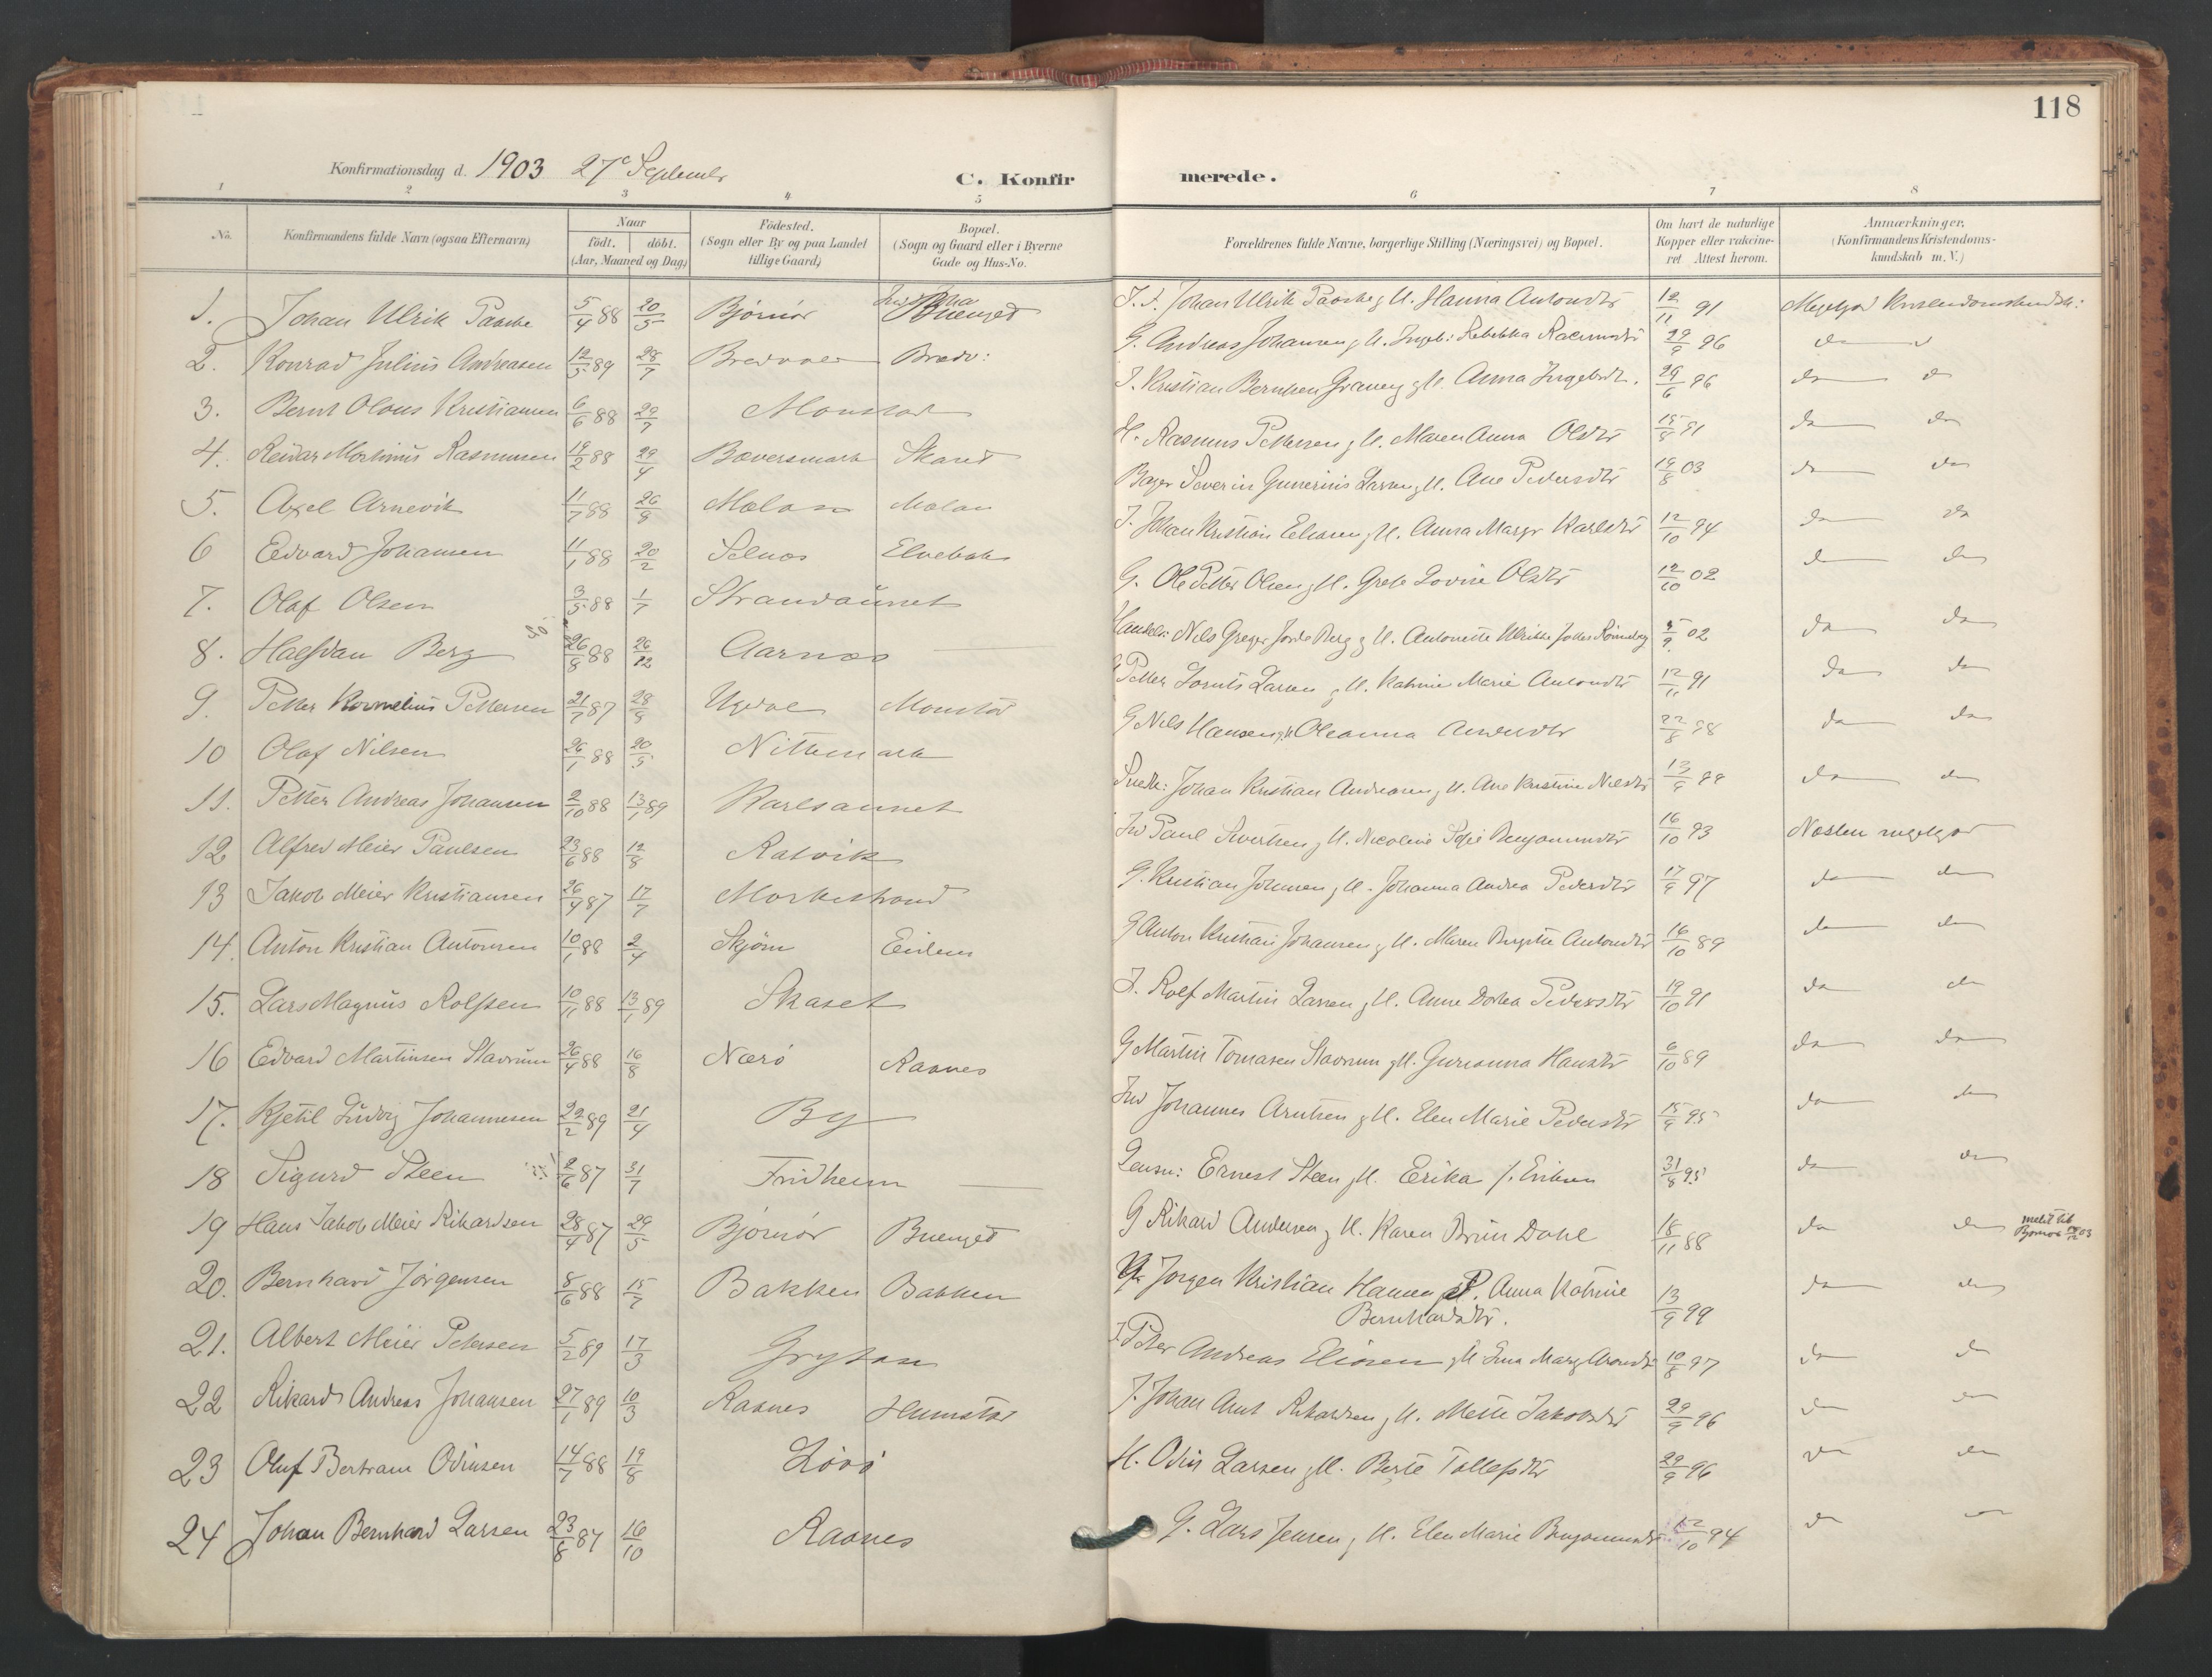 118
Konfirmationsdag d. 1903 27de September
C. Konfirmerede.
1 2 3 4 5 6 7 8
No.
Konfirmandens fulde Navn (ogsaa Efternavn)
Naar
födt. döbt.
(Aar, Maaned og Dag)
Födested.
(Sogn eller By og paa Landet
tillige Gaard)
Bopæl.
(Sogn og Gaard eller i Byerne
Gade og Hus-No.
Forældrenes fulde Navne, borgerlige Stilling (Næringsvei) og Bopæl.
Om havt de naturlige
Kopper eller vaccine-
ret Attest herom.
Anmærkninger.
(Konfirmandens Kristendoms-
kundskab m. V.)
1. Johan Ulrik Paaske 5/4 88 20/5 Bjørnør Buenget Johan Ulrik Paaske g H. Hanna Antondtr 12/11 91 Megetgod Kristendomskundsk:
2. Konrad Julius Andreasen 12/5 89 28/7 Bredvoll Bredv: G. Andreas Johansen g H. Ingeb: Rebekka Rasmusdtr 29/9 96 do
3. Bernt Olaus Kristiansen 6/6 88 29/7 Monstad I. Kristian Berntsen g H. Anna Ingebrdtr. 29/6 96 do do
4. Reidar Martinus Rasmussen 19/2 88 29/4 Bæversmark Skaret H. Rasmus Pettersen g H. Maren Anna Olsdtr 15/8 91 do do
5. Axel Arnevik 11/7 88 26/8 Malan Malan Bager Severin Gunerius Larsen g H. Ane Pedersdtr 19/8 03 do do
6 Edvard Johansen 11/1 88 20/2 Selnes Elvebak I. Johan Kristian Eliasen g H. Anna Margr Karlsdtr 12/10 94 do do
7. Olaf Olsen 3/5 88 1/7 Strandaunet G. Ole Petter Olsen g H. Grete Lovise Olsdtr 12/10 02 do do
8. Halfdan Berg 26/8 88 26/12 Aarnes Handels: Nils Greger Jorde Berg g H. Antonette Ulrikke 5/9 02 do do
9. Petter Kornelius Pettersen 21/7 87 28/8 Ugedal Monstad Petter Lornts Larsen g H. Katrine Marie Antondtr 12/11 91 do do
10 Olaf Nilsen 26/1 88 20/5 Nittemark G Nils Hansen g H Oleanna 22/8 98 do do
11. Petter Andreas Johansen 2/10 88 13/1 89 Karlsaunet Snedk: Johan Kristian Andreasen g H. Ane Kristine Nilsdtr 13/9 99 do do
12 Alfred Meier Paulsen 23/6 88 12/8 Ratvik Ind Paul Sivertsen g H. Nicoline Sofie Benjamindtr 16/10 93 Næsten megetgod
13 Jakob Meier Kristiansen 26/4 87 17/7 Markestrand G. Kristian Johnsen g H. Johanna Andrea Pedersdtr 17/9 97 do do
14. Anton Kristian Antonsen 10/1 88 2/4 Skjørn Eidem G Anton Kristian Johansen g H. Maren Birgitte Antondtr 16/10 89 do do
15. Lars Magnus Rolfsen 10/11 88 13/1 89 Skaset I. Rolf Martin Larsen g H. Anne Dortea Pedersdtr 19/10 91 do do
16 Edvard Martinsen Stavrum 26/4 88 16/8 Nærø Raanes G Martin Tomasen Stavrum g H. Gurianna Hansdtr 6/10 89 do do
17. Kjetil Ludvig Johannesen 22/2 89 21/4 By Ind Johannes Arntsen g H. Elen Marie Pedersdtr 15/9 95 do do
18 Sigurd Steen 2/6 87 31/7 Fridheim Lensm: Ernest Steen g H. Erika f. Eriksen 31/8 95 do do
19 Hans Jakob Meier Rikardsen 28/4 87 29/5 Bjørnør Buenget G Rikard Andersen g H. Karen Brun Dahl 18/11 88 do do meldt til Bjørnør 03
20. Bernhard Jørgensen 8/6 88 15/7 Bakken Bakken Jørgen Kristian Hansen g P. Anna Katrine
Bernhardsdtr. 13/9 99 do do
21. Albert Meier Petersen 5/2 89 17/3 Grytan I. Peter Andreas Eliasen g H Marg 10/8 97 do do
22 Rikard Andreas Johansen 27/1 89 10/3 Raanes Humstad I. Johan Arnt Rikardsen g H. Mette Jakobsdtr 29/9 96 do do
23 Oluf Bertram Odinsen 14/7 88 19/8 Løvø H. Odin Larsen g H. Berte Tollefsdtr 29/9 96 do do
24 Johan Bernhard Larsen 23/8 87 16/10 Raanes G. Lars Jensen g H. Elen Marie Benjamindtr 12/10 94 do